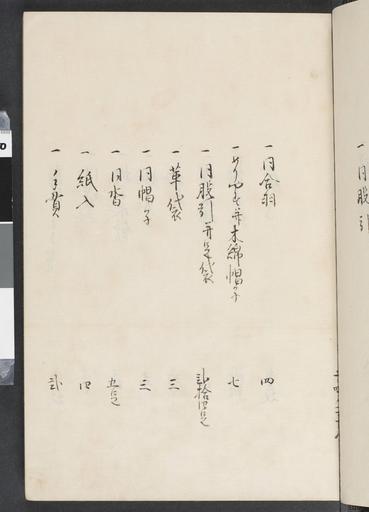 一同股引
一同合羽 四
一めりやす并木綿帽子 七
一同股引并足袋 弐拾四足
一革袋 三
一同帽子 三
一同沓 五足
一紙入 四
一手貫 弐